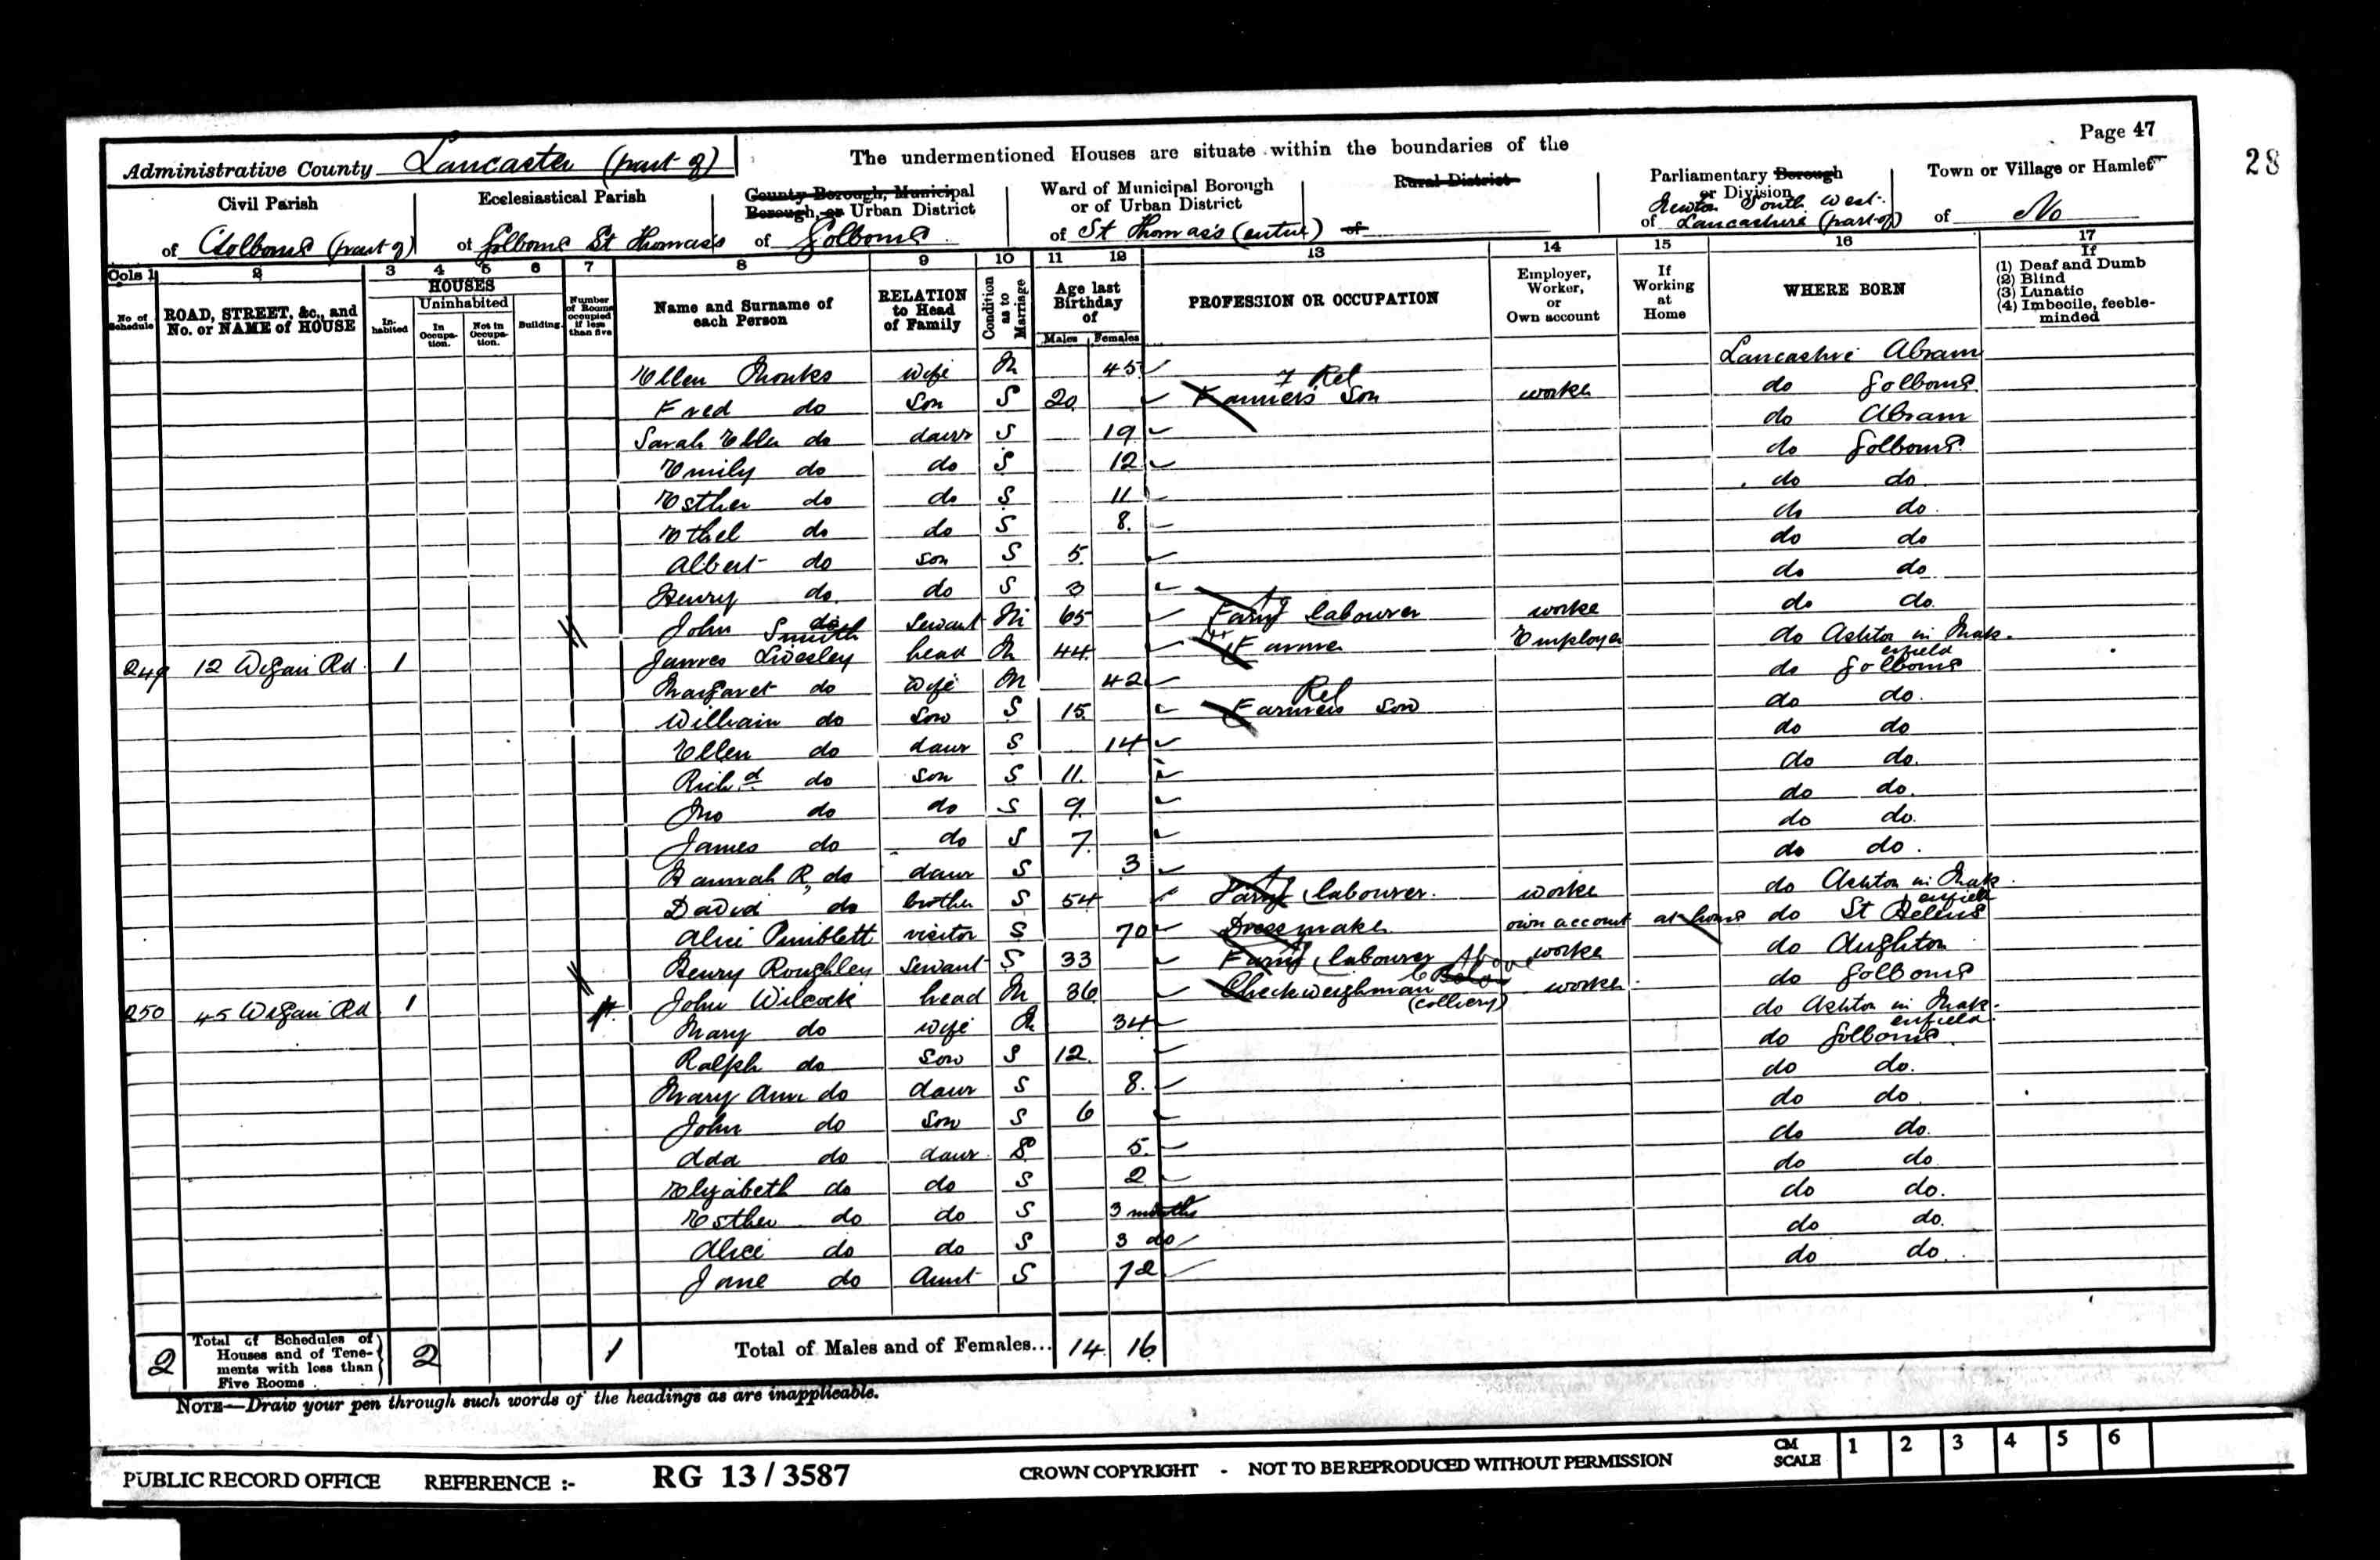 Page 47
28
Administrative County Lancaster (part of)
The undermentioned Houses are situate within the boundaries of the
Civil Parish
of Golborne (part of)
Ecclesiastical Parish
of Golborne St Thomas's
County Borough, Municipal
Borough, or Urban District
of Golborne
Ward of Municipal Borough
or of Urban District
of St Thomas's (entire)
Rural District
of
Parliamentary Borough
or Division
of Newton South West Lancashire (part of)
Town or Village or Hamlet
of No
Cols 1 2 3 4 5 6 7 8 9 10 11 12 13 14 15 16 17
No of Schedule
ROAD, STREET, &c., and No. or NAME of HOUSE
HOUSES
Inhabited
Uninhabited
In Occupation.
Not in Occupation.
Building.
Number of Rooms occupied if less than five
Name and Surname of each Person
RELATION to Head of Family
Condition as to Marriage
Age last Birthday of
Males Females
PROFESSION OR OCCUPATION
Employer, Worker, or Own account
If Working at Home
WHERE BORN
If
(1) Deaf and Dumb
(2) Blind
(3) Lunatic
(4) Imbecile, feeble-minded
Ellen Monks wife M 45 Lancashire Abram
Fred do son S 20 Farmers Son F Rel worker do Golborne
Sarah Ellen do daur S 19 do Abram
Emily do do S 12 do Golborne
Esther do do S 11 do do
Ethel do do S 8 do do
Albert do son S 5 do do
Henry do do S 3 do do
John Smith servant 65 Farm labourer worker do do
249 12 Wigan Rd 1 James Livesley head M 44 Farmer Employer do Ashton in Makerfield
Margaret do wife M 42 do Golborne
William do son S 15 Farmers son Rel do do
Ellen do daur S 14 do do
Richd do son S 11 do do
Jno do do S 9 do do
James do do S 7 do do
Hannah R, do daur S 3 do do
David do brother S 54 Farm labourer worker do Ashton in Makerfield
Alice Pimblett visitor S 70 Dressmaker own account at home do St Helens
Henry Roughley servant S 33 Farm labourer worker do Aughton
250 45 Wigan Rd 1 4 John Wilcock head M 36 Checkweighman Above (colliery) worker do Golborne
Mary do wife M 34 do Ashton in Makerfield
Ralph do son S 12 do Golborne
Mary Ann do daur S 8 do do
John do son S 6 do do
Ada do daur S 5 do do
Elizabeth do do S 2 do do
Esther do do S 3 months do do
Alice do do S 3 do do do
Jane do Aunt S 72 do do
2 Total of Schedules of Houses and of Tenements with less than Five Rooms 2 1 Total of Males and of Females... 14 16
NOTE—Draw your pen through such words of the headings as are inapplicable.
PUBLIC RECORD OFFICE REFERENCE :- RG 13 / 3587 CROWN COPYRIGHT - NOT TO BE REPRODUCED WITHOUT PERMISSION CM SCALE 1 2 3 4 5 6